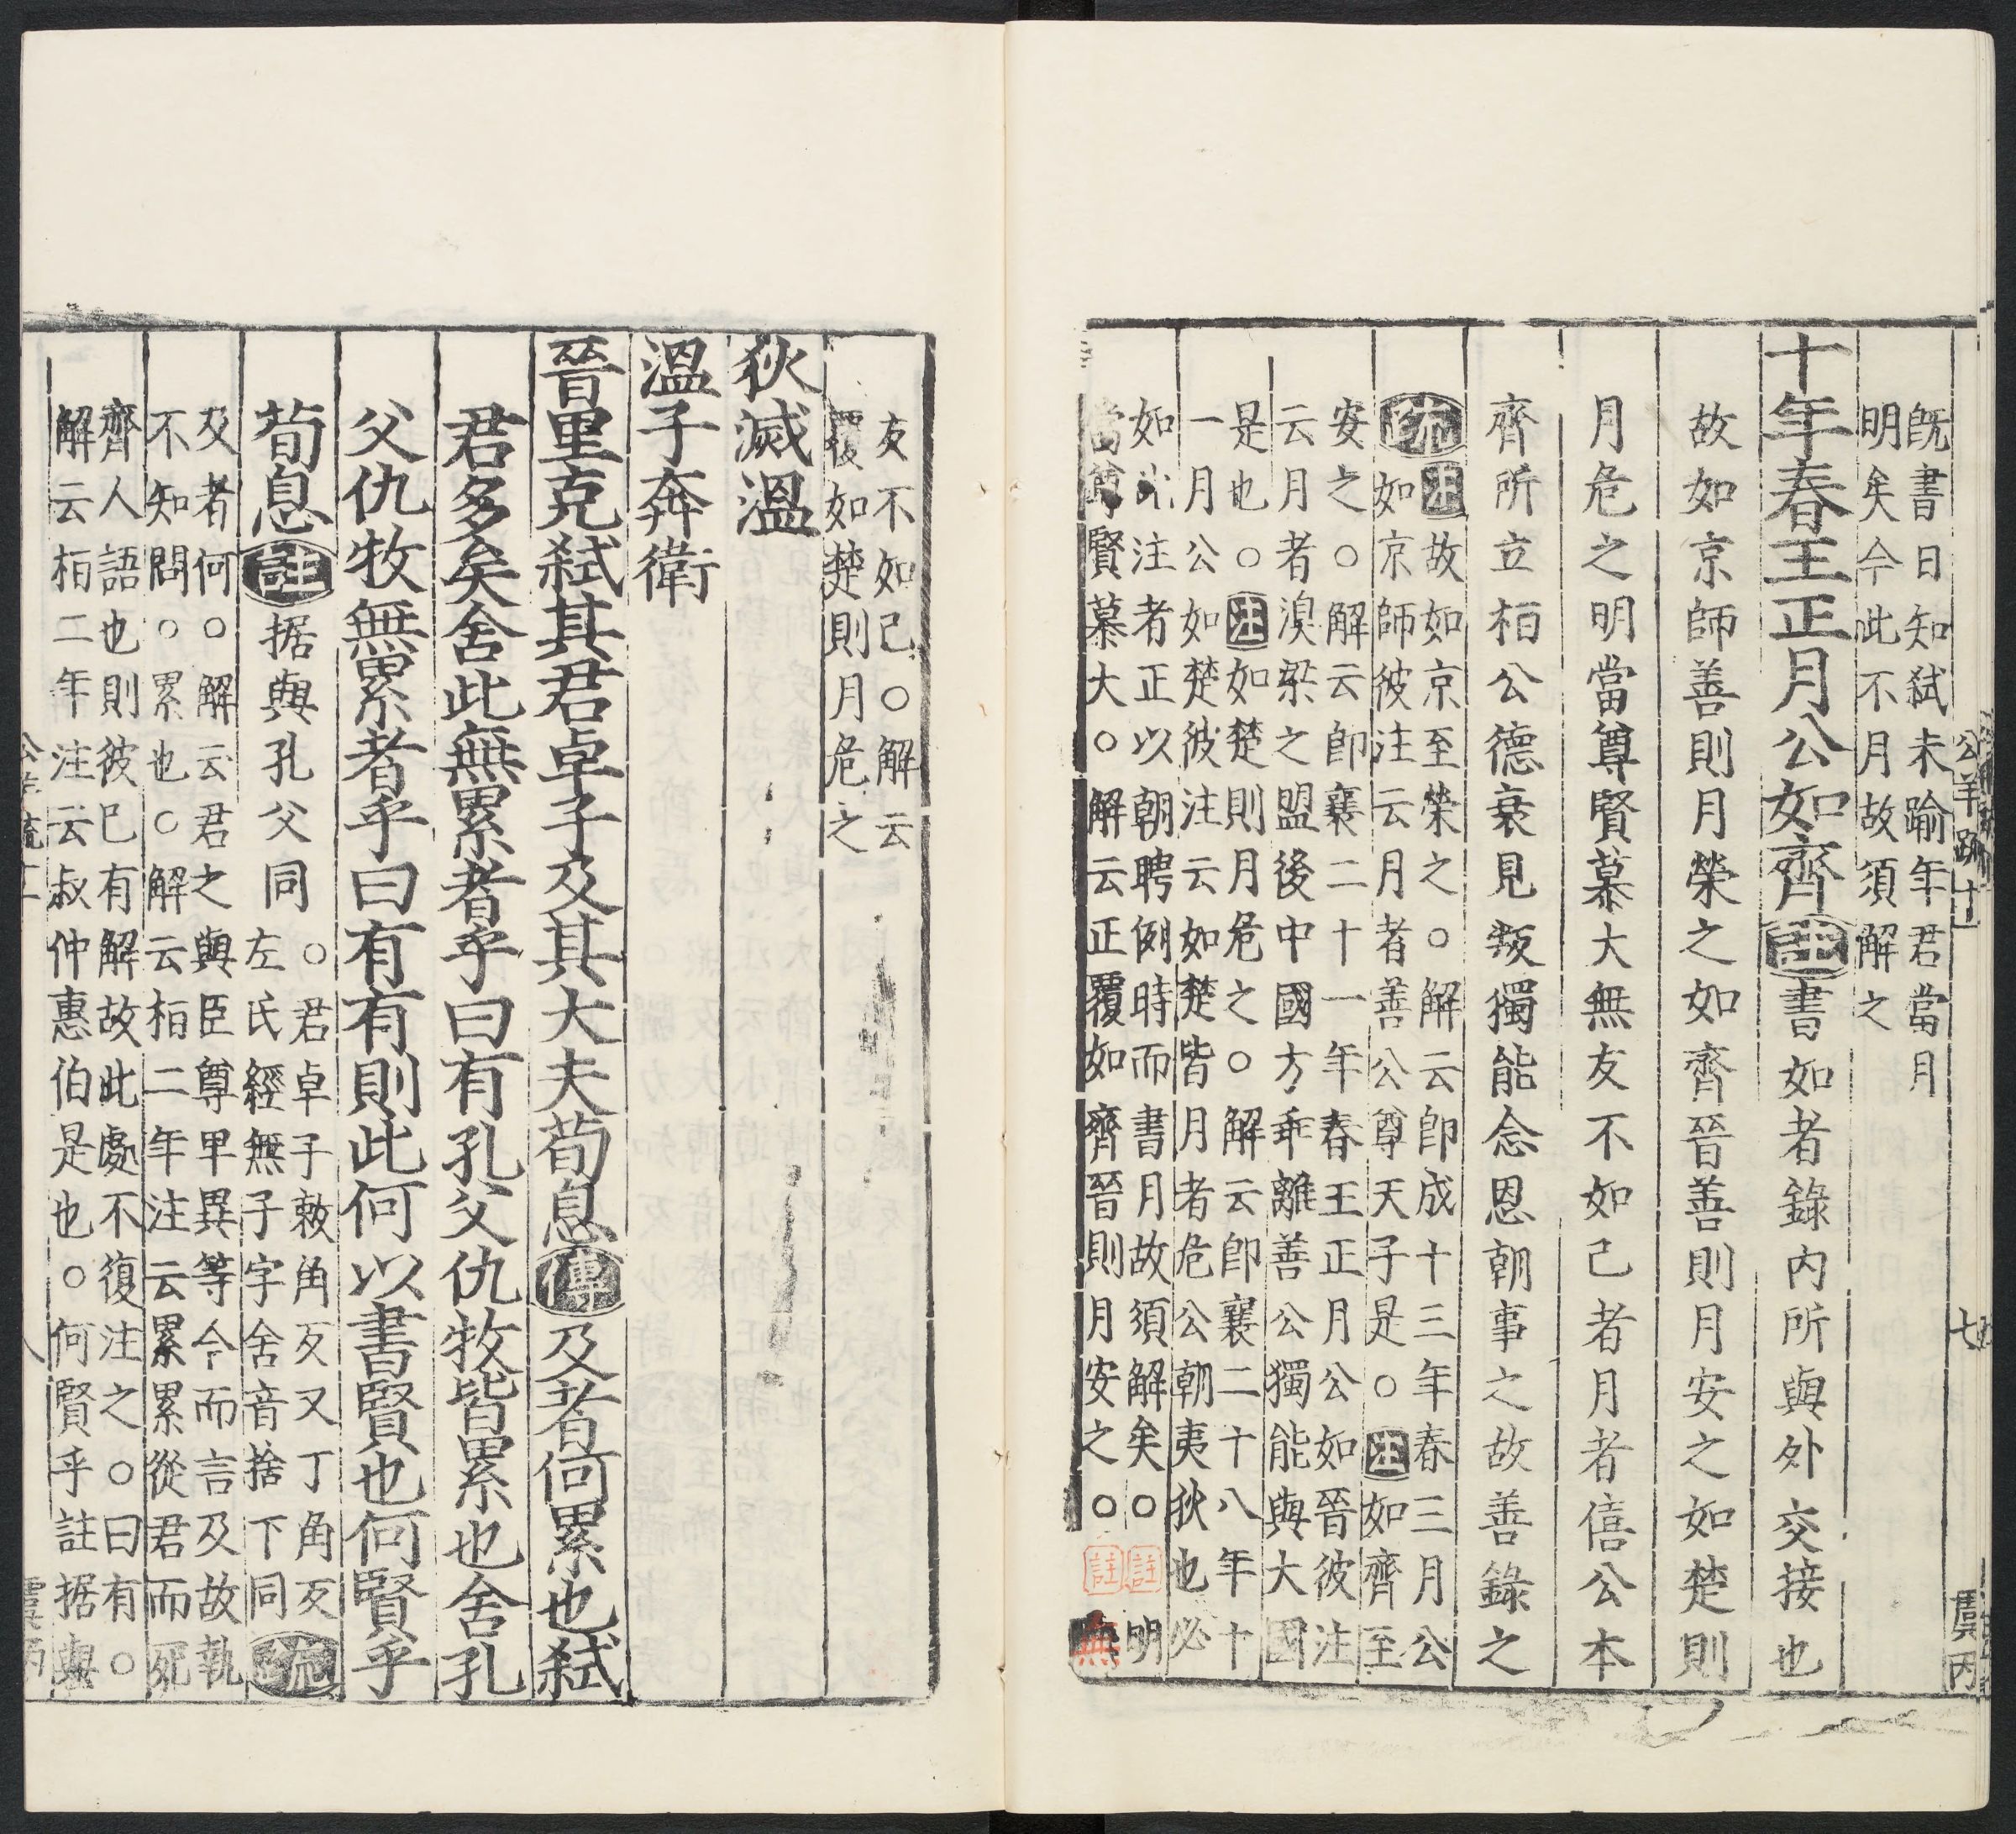 既書日知弑未踰年君當月
明矣今此不月故須解之
十年春王正月公如齊註書如者錄內所與外交接也
故如京師善則月榮之如齊晉善則月安之如楚則
月危之明當尊賢慕大無友不如己者月者僖公本
齊所立桓公德衰見叛獨能念恩朝事之故善錄之
疏注故如京至榮之○解云即成十三年春三月公
如京師彼注云月者善公尊天子是○注如齊至
安之○解云即襄二十一年春王正月公如晉彼注
云月者溴梁之盟後中國方乖離善公獨能與大國
是也○注如楚則月危之○解云即襄二十八年十
一月公如楚彼注云如楚皆月者危公朝夷狄也必
如此注者正以朝聘例時而書月故須解矣○註明
當尊賢慕大○解云正覆如齊晉則月安之○註無
公羊疏十一
七
虞丙
友不如己○解云
覆如楚則月危之
狄滅溫
溫子奔衛
晉里克弑其君卓子及其大夫荀息傳及者何累也弑
君多矣舍此無累者乎曰有孔父仇牧皆累也舍孔
父仇牧無累者乎曰有有則此何以書賢也何賢乎
荀息註据與孔父同○君卓子敕角反又丁角反
左氏經無子字舍音捨下同疏
及者何○解云君之與臣尊卑異等今而言及故執
不知問○累也○解云桓二年注云累累從君而死
齊人語也則彼已有解故此處不復注之○曰有○
解云桓二年注云叔仲惠伯是也○何賢乎註据與